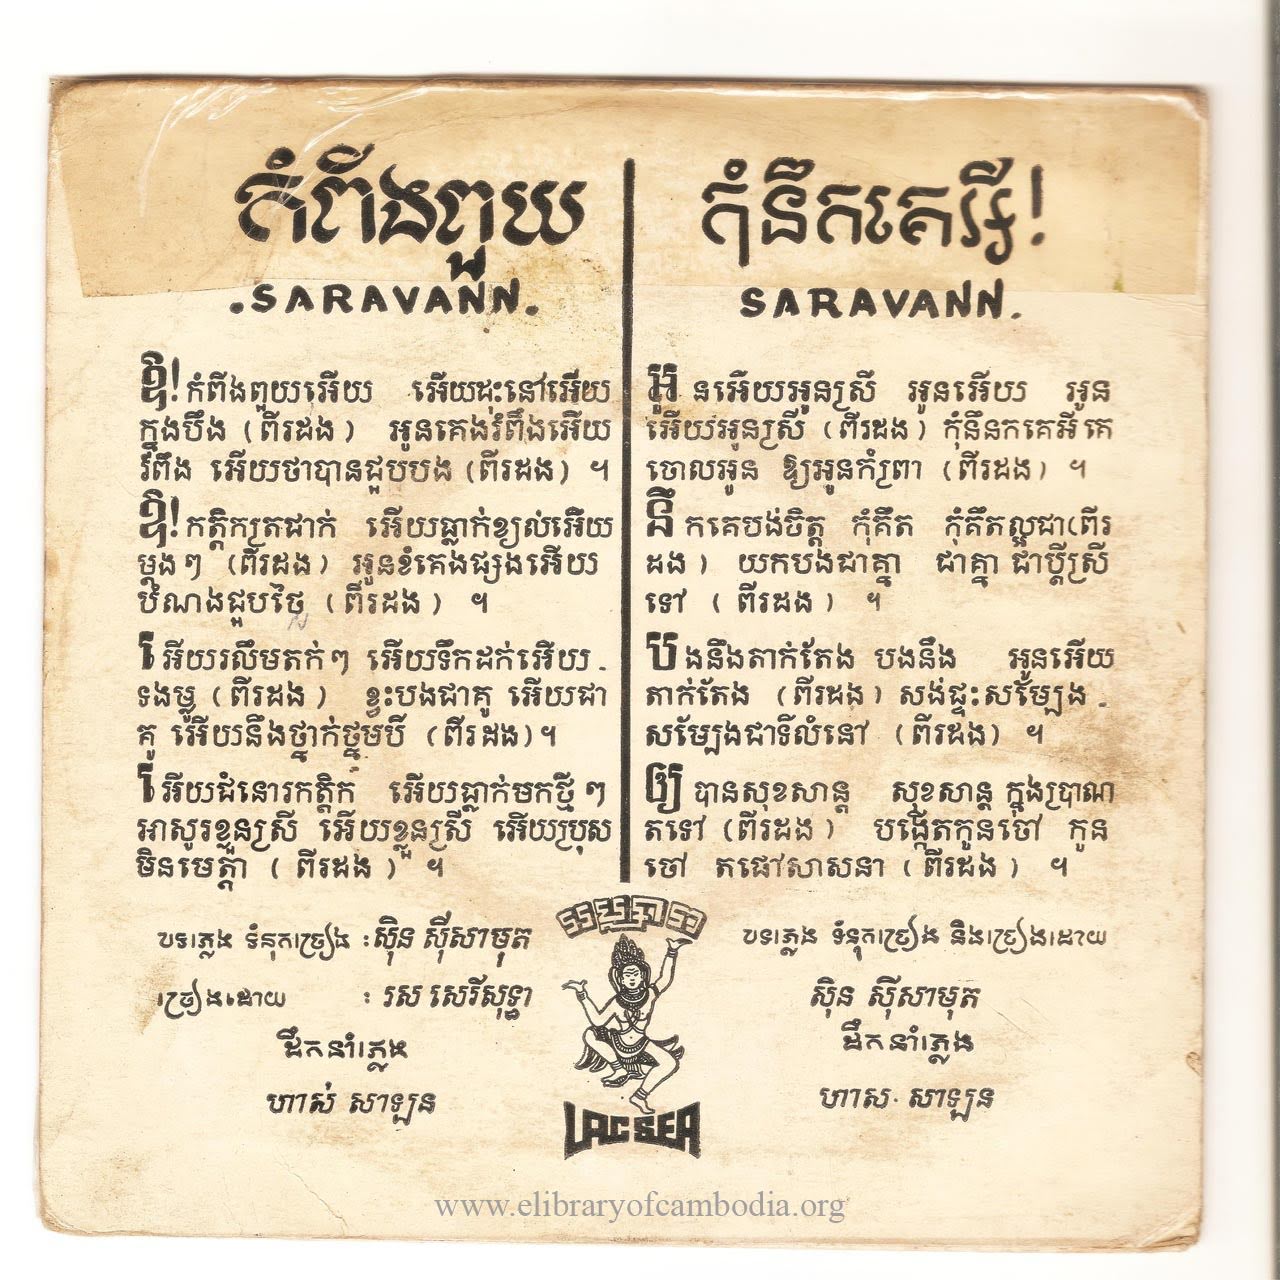 កំពីងពួយ
.SARAVANN.
ឱ! កំពីងពួយអើយ អើយដុះនៅអើយ
ក្នុងបឹង (ពីរដង) អូនគេងរំពឹងអើយ
រំពឹង អើយថាបានជួបបង (ពីរដង) ។
ឱ! កត្តិក្យតជាក់ អើយធ្លាក់ខ្យល់អើយ
ម្តងៗ (ពីរដង) អូនខំគេងផ្សងអើយ
បំណងជួបថ្លៃ (ពីរដង) ។
អើយរលឹមតក់ៗ អើយទឹកដក់អើយ
ទងម្លូ (ពីរដង) ខ្វះបងជាគូ អើយជា
គូ អើយនឹងថ្នាក់ថ្នមបី (ពីរដង)។
អើយជំនោរកត្តិក អើយធ្លាក់មកថ្មីៗ
អាសូរខ្លួនស្រី អើយខ្លួនស្រី អើយប្រុស
មិនមេត្តា (ពីរដង) ។
បទភ្លេង ទំនុកច្រៀង : ស៊ិន ស៊ីសាមុត
ច្រៀងដោយ : រស សេរីសុទ្ធា
ដឹកនាំភ្លេង
ហាស់ សាឡន
កុំនឹកគេអី!
SARAVANN.
អូនអើយអូនស្រី អូនអើយ អូន
អើយអូនស្រី (ពីរដង) កុំនឹនកគេអី គេ
ចោលអូន ឱ្យអូនកំព្រា (ពីរដង) ។
នឹកគេបង់ចិត្ត កុំគឹត កុំគឹតល្អជា(ពីរ
ដង) យកបងជាគ្នា ជាគ្នា ជាប្តីស្រី
ទៅ (ពីរដង) ។
បងនឹងតាក់តែង បងនឹង អូនអើយ
តាក់តែង (ពីរដង) សង់ផ្ទះសម្បែង
សម្បែងជាទីលំនៅ (ពីរដង) ។
ឲ្យបានសុខសាន្ត សុខសាន្ត ក្នុងប្រាណ
តទៅ (ពីរដង) បង្កើតកូនចៅ កូន
ចៅ តផៅសាសនា (ពីរដង) ។
បទភ្លេង ទំនុកច្រៀង និងច្រៀងដោយ
ស៊ិន ស៊ីសាមុត
ដឹកនាំភ្លេង
ហាស. សាឡន
LAC SEA
www.elibraryofcambodia.org